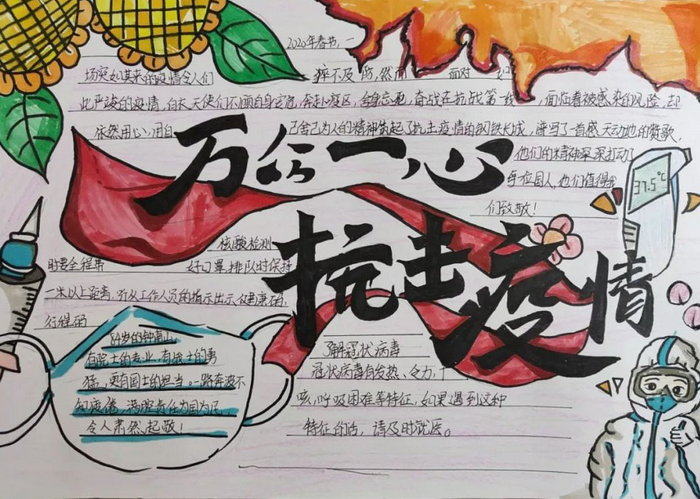 2020年春节,一
场突如其来的疫情令人们
猝不及防,然而
面对
此严峻的疫情,白衣天使们不顾自身安危,奔赴疫区,舍身忘死,奋战在抗战第一线,面临着被感染的风险,却
依然用心,用自
己舍己为人的精神筑起了抗击疫情的钢铁长城,谱写了一首感天动地的赞歌,
他们的精神深深打动了
每位国人,他们值得我
们致敬!
万众一心
抗击疫情
37.5℃
核酸检测
时要全程带
好口罩,排队时保持
一米以上距离,听从工作人员的指示出示健康码,
行程码
84岁的钟南山
有院士的专业,有战士的勇
猛,更有国士的担当,一路奔波不
知疲倦,满腔责任为国为民
令人肃然起敬!
了解冠状病毒
冠状病毒有发热、乏力、干
咳、呼吸困难等特征,如果遇到这种
特征的话,请及时就医。